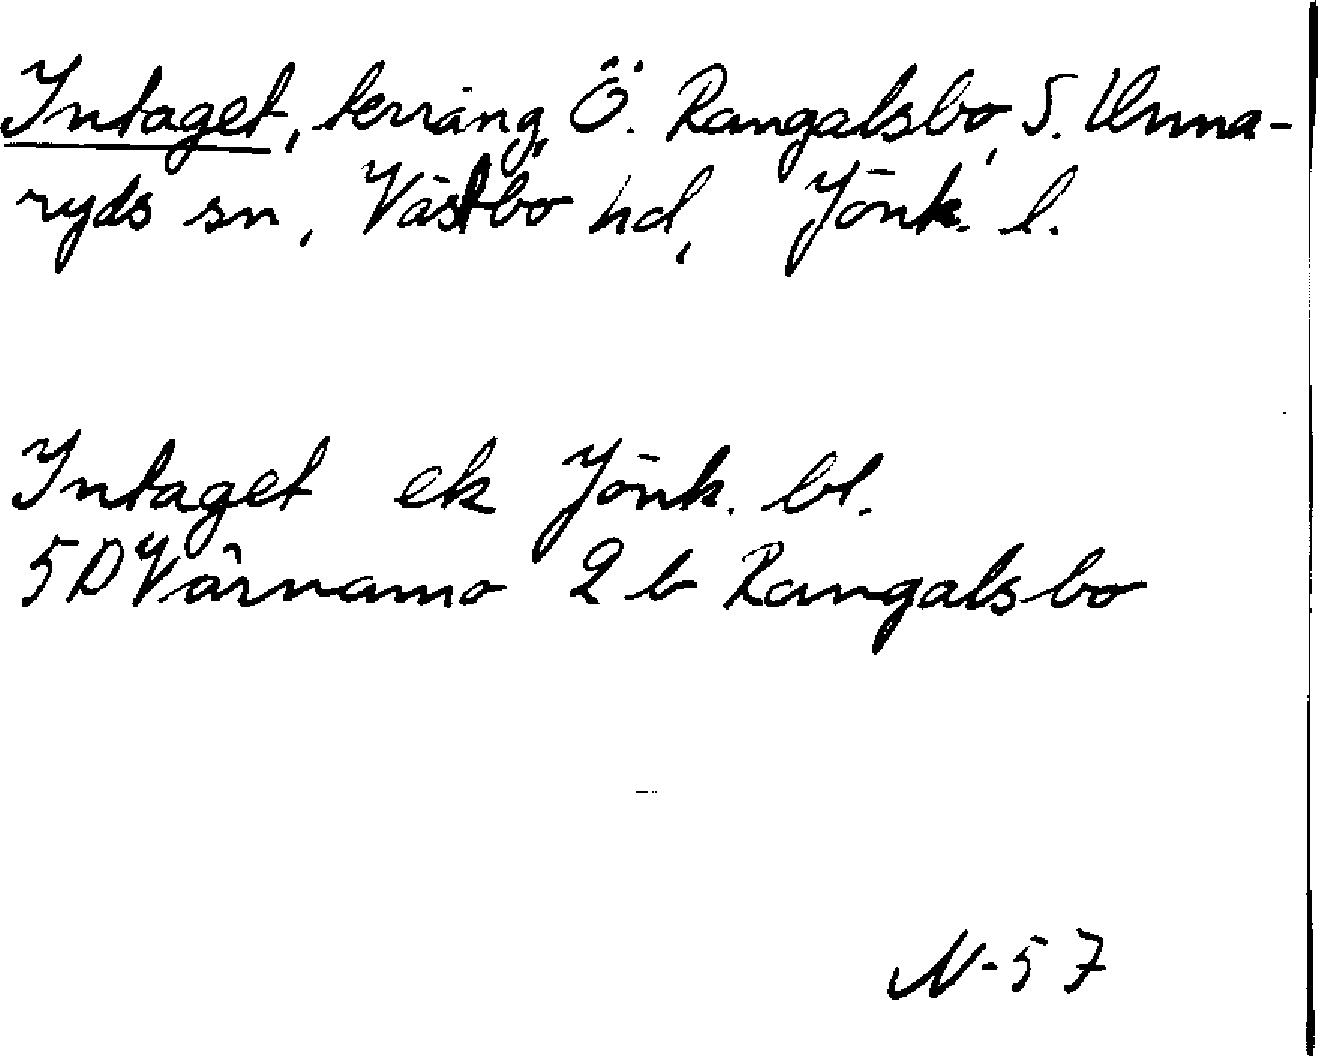 Intaget, terräng, Ö. Rangalsbo, S. Unna-
ryds sn, Västbo hd, Jönk. l.
Intaget ek Jönk. bl.
5D Värnamo 2 b Rangalsbo
N-57